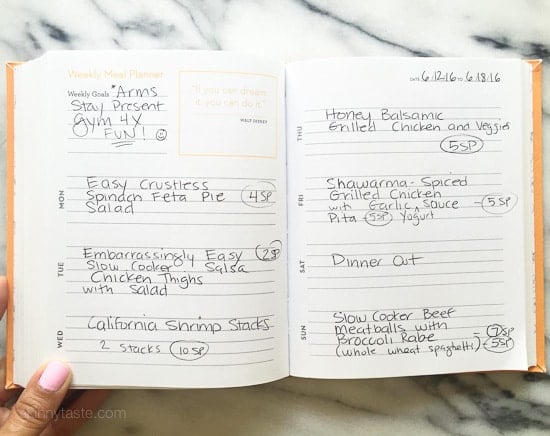 Weekly Meal Planner
Weekly Goals *Arms
Stay Present
Gym 4X
FUN!
"If you can dream
it, you can do it."
WALT DISNEY
MON
Easy Crustless
Spinach Feta Pie 4SP
Salad
TUE
Embarrassingly Easy 2SP
Slow Cooker Salsa
Chicken Thighs
with Salad
WED
California Shrimp Stacks
2 Stacks 10SP
DATE 6·12·16 TO 6·18·16
THU
Honey Balsamic
Grilled Chicken and Veggies
5SP
FRI
Shawarma-Spiced
Grilled Chicken
with Garlic Sauce - 5SP
Pita 5SP Yogurt
SAT
Dinner Out
SUN
Slow Cooker Beef
Meatballs with
Broccoli Rabe - 7SP
(whole wheat spaghetti) - 5SP
skinnytaste.com